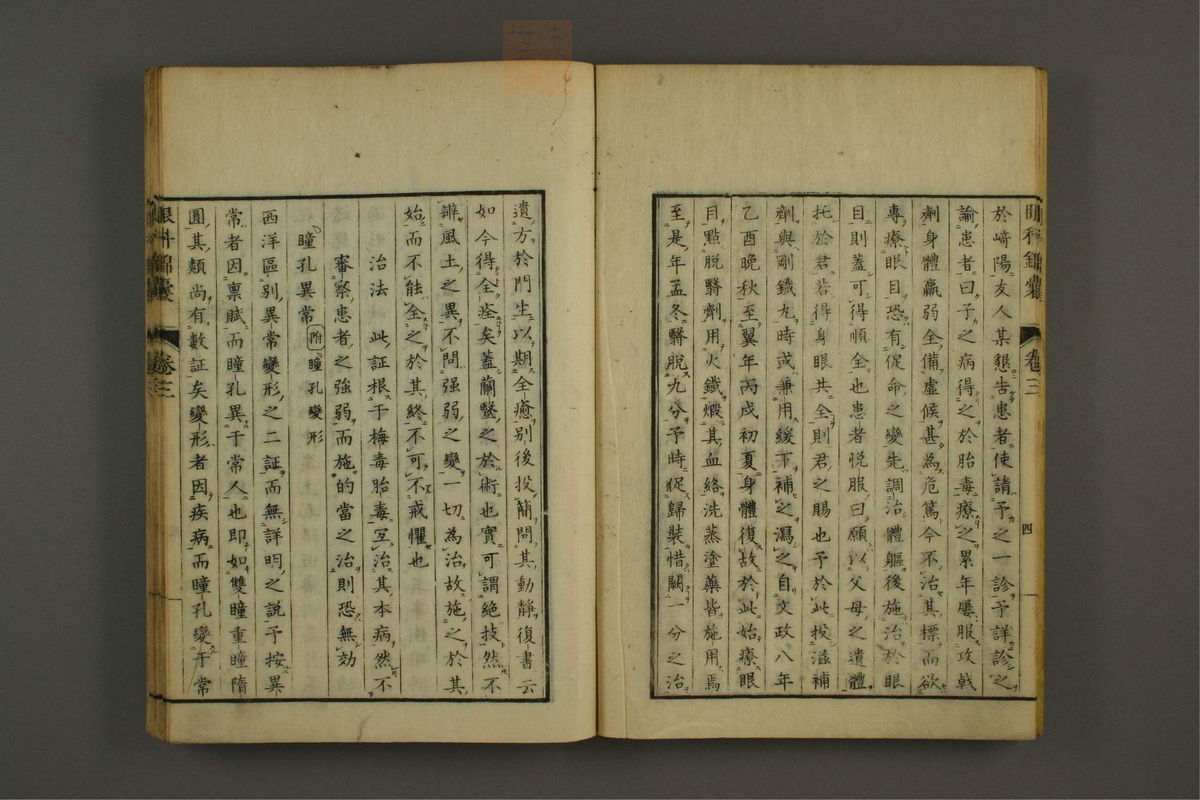 於﨑陽友人某懇告患者使請予之一診予詳診之
諭患者曰子之病得之於胎毒療之累年屢服攻戟
劑身體羸弱全備虛候甚為危篤今不治其標而欲
專療眼目恐有促命之變先調治體軀後施治於眼
目則蓋可得順全也患者悅服曰願以父母之遺體
托於君若得身眼共全則君之賜也予於此投滋補
劑與剛鐵丸時或兼用緩下補之瀉之自文政八年
乙酉晚秋至翼年丙戌初夏身體復故於此始療眼
目點脫翳劑用火鐵煆其血絡洗蒸塗藥皆施用焉
至是年孟冬翳脫九分予時促歸裝惜闕一分之治
眼科錦囊 卷三 四
遺方於門生以期全癒別後投簡問其動靜復書云
如今得全痊矣蓋蘭醫之於術也實可謂絕技然不
辨風土之異不問强弱之變一切為治故施之於其
始而不能全之於其終不可不戒懼也
治法 此証根于梅毒胎毒宜治其本病然不
審察患者之强弱而施的當之治則恐無効
瞳孔異常 附瞳孔變形
西洋區別異常變形之二証而無詳明之說予按異
常者因稟賦而瞳孔異于常人也即如雙瞳重瞳隋
圓其類尚有數証矣變形者因疾病而瞳孔變于常
眼科錦囊 卷三